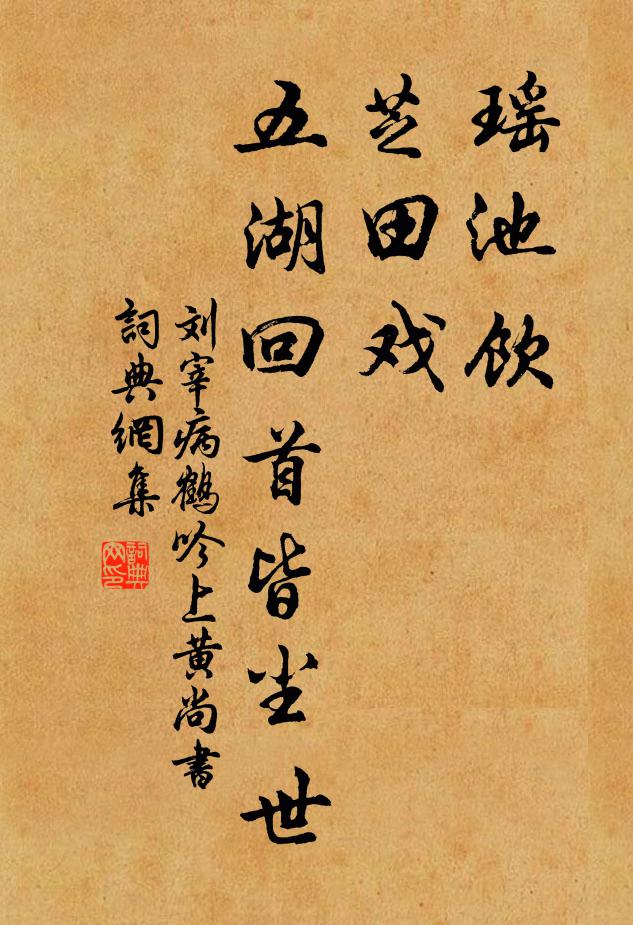 瑶池饮
芝田戏
五湖回首皆尘世
刘宰病鹤吟上黄尚书
詞典網集
詞典网印